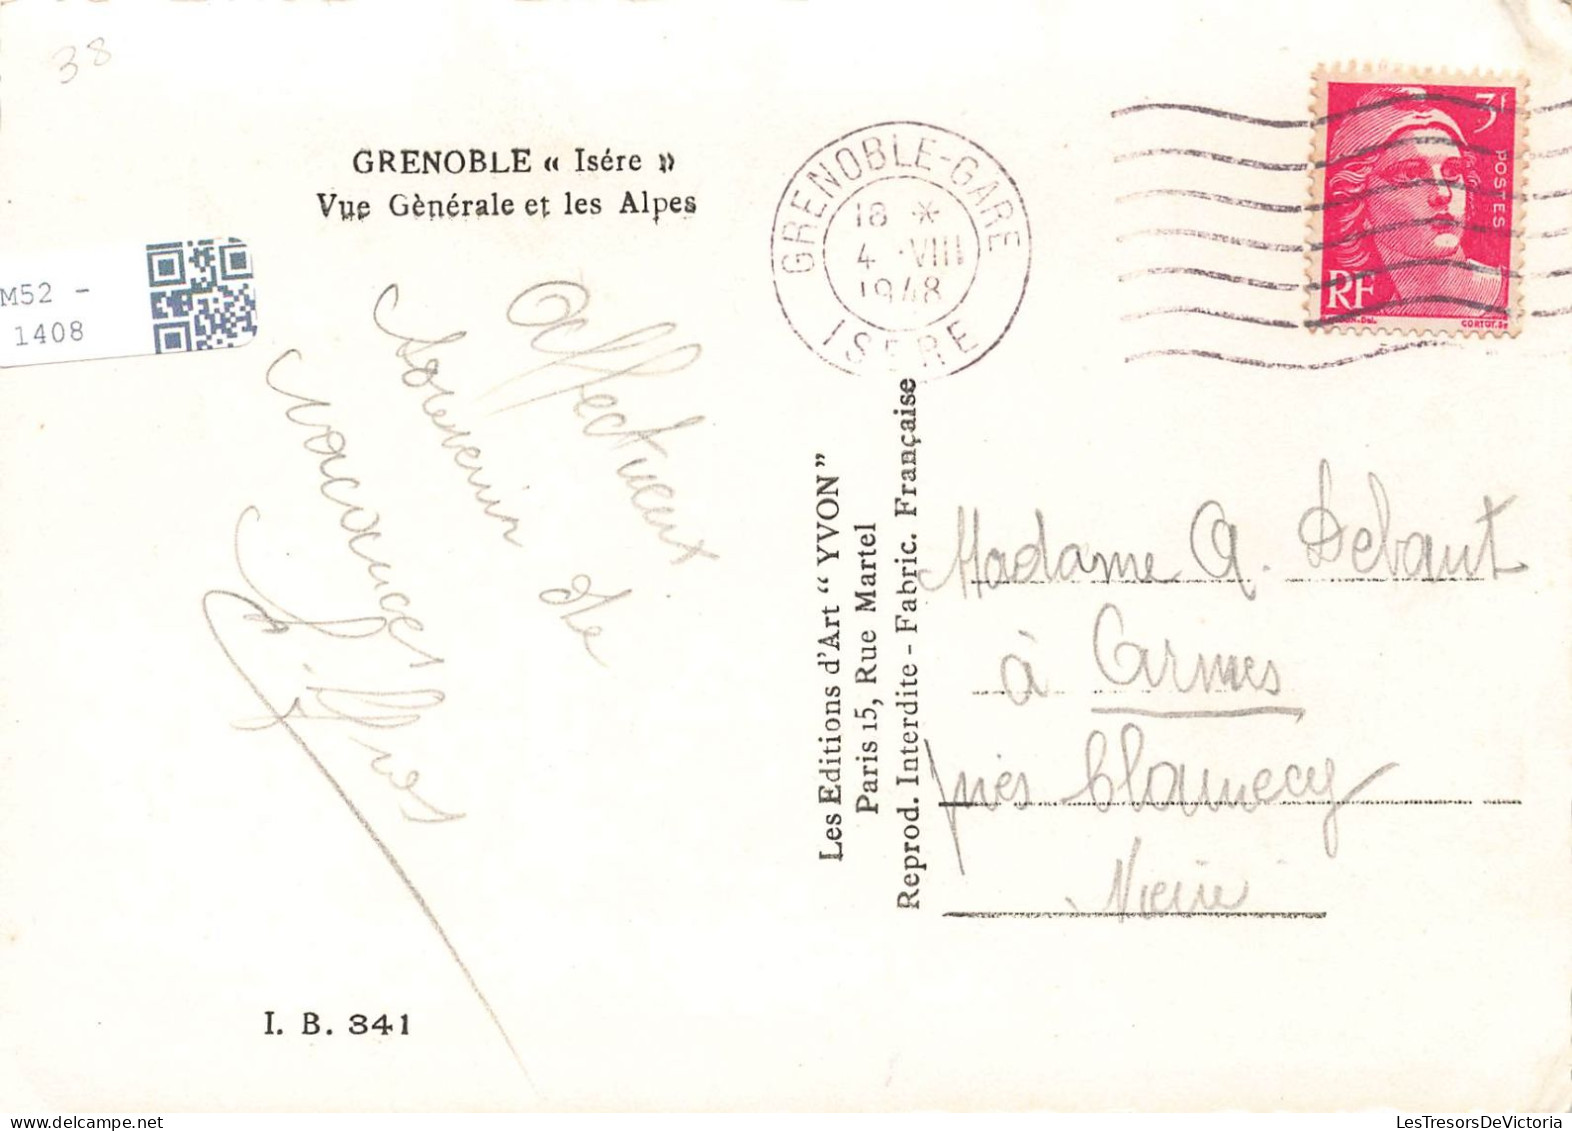 38
GRENOBLE « Isére »
Vue Gènérale et les Alpes
M52 -
1408
Affectueux
souvenir de
vacances
GRENOBLE-GARE
18 *
4 -VIII
1948
ISERE
3f
POSTES
RF
CORTOT.Sc
Les Editions d'Art “ YVON”
Paris 15, Rue Martel
Reprod. Interdite - Fabric. Française
Madame A. Debaut
à Carmes
près Clamecy
Nièvre
I. B. 341
LesTresorsDeVictoria